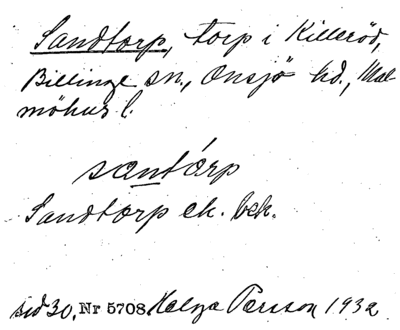 Sandtorp, torp i Killeröd,
Billinge sn., Onsjö hd., Mal-
möhus l.
santárp
Sandtorp ek. bek.
sid 30. Nr 5708 Helga Persson 1932